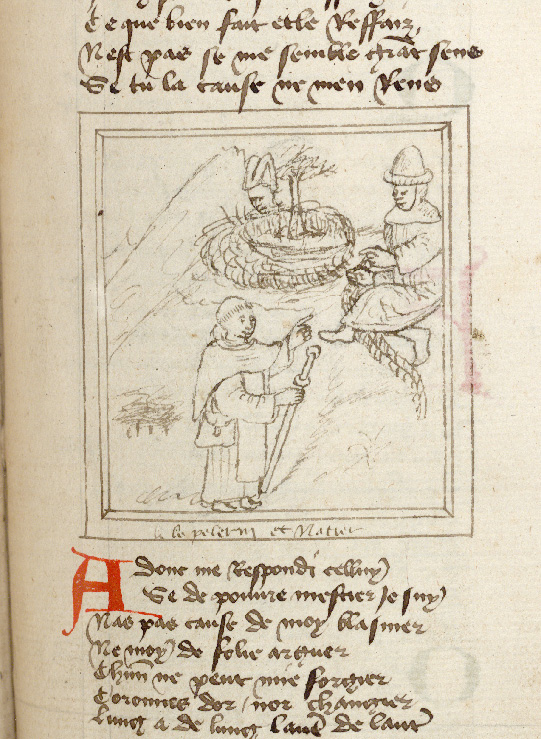 Ce que bien fait et le Reffaiz
Nest pas se me semble grat sens
Se tu la cause ne men Rens
le pelerin et Natier
Adonc me Respondi celluy
Se de poure mestier je suy
Nas pas cause de moy blasmer
Ne moy de folie arguer
Chun ne peut mie forgier
Coronnes dor nor changier
Lung a de lung laut de laut